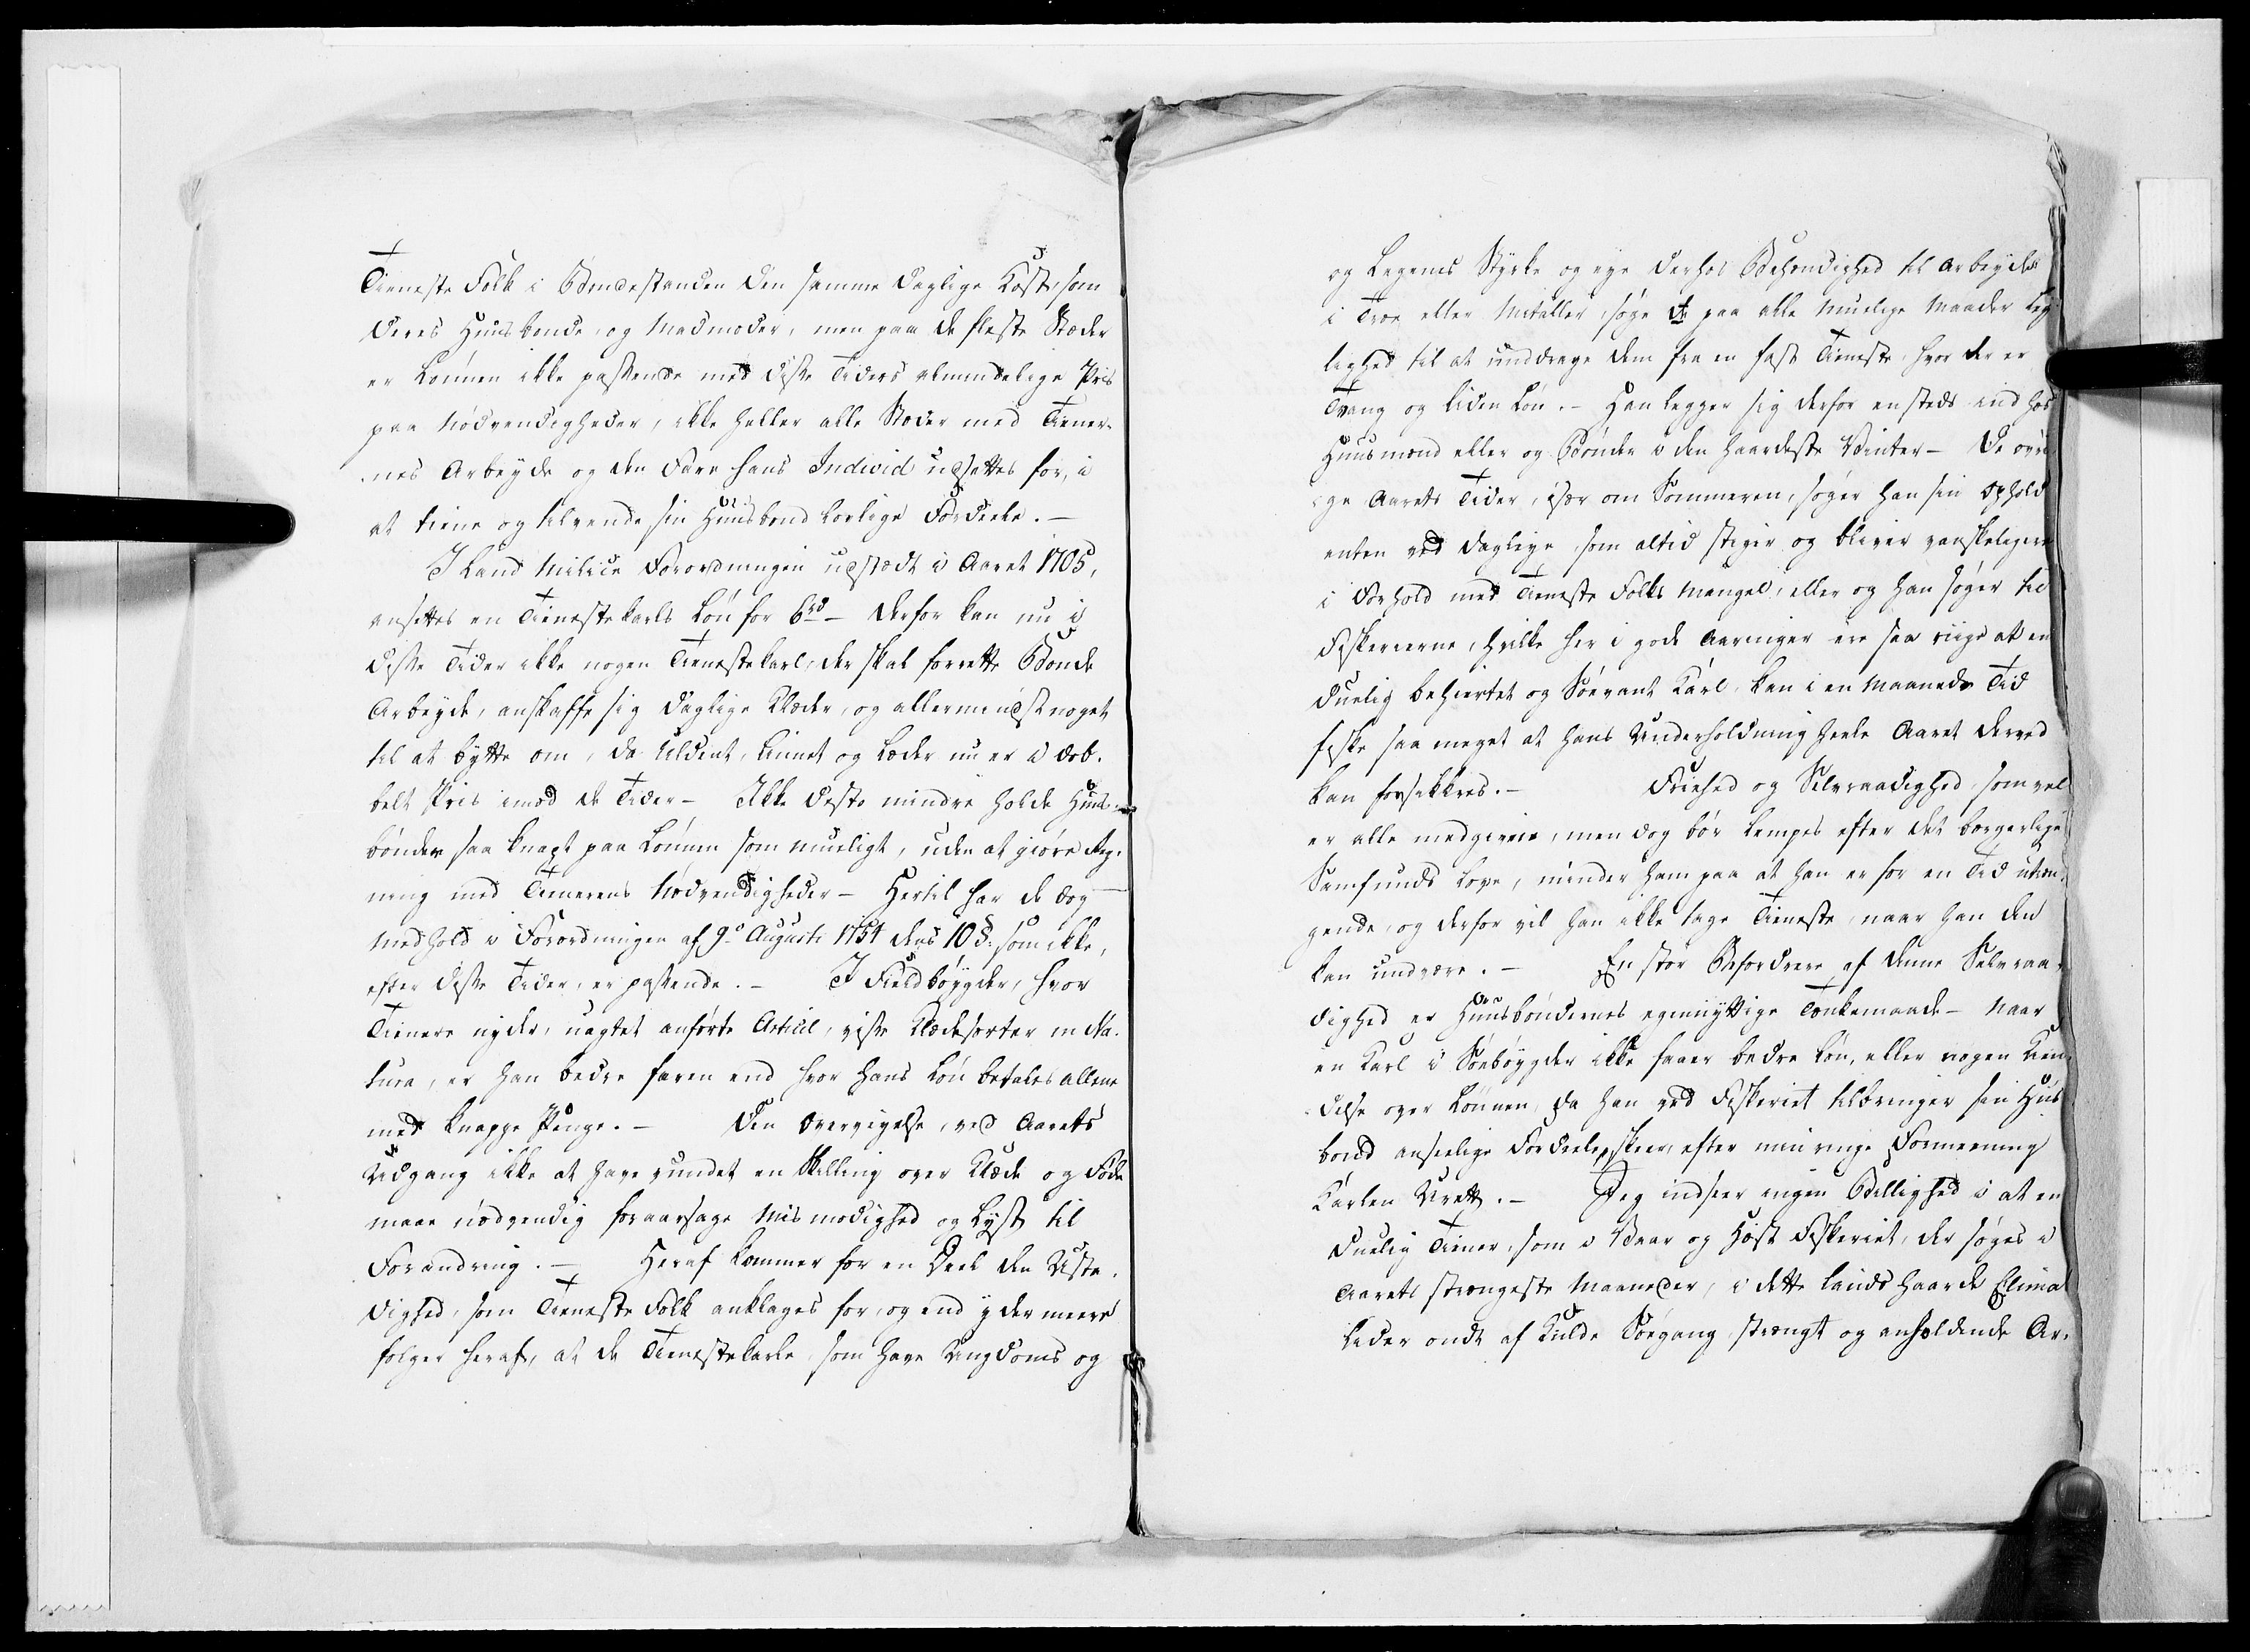 Tieneste Folk i Bondestanden den samme daglige Kost, som
deres Huusbonde og Madmoder, men paa de fleste Stæder
er Lønnen ikke passende med disse Tiders almindelige Priis
paa Nødvendigheder, ikke heller alle Stæder med Tiener-
nes Arbeyde og den Fare hans Individ udsættes for, i
at tiene og tilvende sin Huusbond lovlige Fordeele. -
I Land Milice Forordningen udstædt i Aaret 1705,
ansættes en Tienestekarls Løn for 6 rd - derfor kan nu i
disse Tider ikke nogen Tienestekarl, der skal forrette Bonde
Arbeyde, anskaffe sig daglige Klæder, og allermindst noget
til at bytte om, da Uldent, Linnet og Læder nu er i dob-
belt Priis imod de Tider - Ikke desto mindre holde Huus-
bønder saa knapt paa Lønnen som mueligt, uden at giøre Reg-
ning med Tienerens Nødvendigheder - Hertil har de dog
Medhold i Forordningen af 9de Augusti 1754 dens 10 §: som ikke,
efter disse Tider, er passende. - I Fieldbøygder, hvor
Tienere nyder, uagtet anførte Articul, visse Klædesorter in Na-
tura, er han bedre faren end hvor hans Løn betales allene
med knappe Penge. - Den Overvejelse, ved Aarets
Udgang ikke at have vundet en Skilling over Klæde og Føde
maae nødvendig foraarsage Mismodighed og Lyst til
Forandring. - Heraf kommer for en Deel den Ustæ-
dighed, som Tieneste Folk anklages for, og end ydermeere
følger heraf, at de Tienestekarle som have Ungdoms og
og Legems Styrke og eye derhos Behændighed til Arbeyde
i Træe eller Metaller, søge de paa alle muelige Maader Ley-
lighed til at unddrage dem fra en fast Tieneste, hvor der er
Tvang og liden Løn. - Han legger sig derfor ensteds ind hos
Huusmænd eller og Bønder i den haardeste Vinter - De øvri-
ge Aarets Tider, især om Sommeren, søger han sin Ophold
enten ved Dagleye, som altid stiger og bliver vanskeligere
i Forhold med Tieneste Folks Mangel, eller og han søger til
Fiskerierne, hvilke her i gode Aaringer ere saa riige at en
duelig behiertet og Søevant Karl, kan i en Maaneds Tid
fiske saa meget at hans Underholdning heele Aaret derved
kan forsikkres. - Friehed og Selvraadighed, som vel
er alle medgiven, men dog bør lempes efter det borgerlige
Samfunds Love, minder ham paa at han er for en Tid utræn-
gende, og derfor vil han ikke tage Tieneste, naar han den
kan undvære. - En stor Befordrere af denne Selvraa-
dighed er Huusbøndernes egennyttige Tænkemaade - Naar
en Karl i Søebøygder ikke faaer bedre Løn, eller nogen Kien-
delse over Lønnen, da han ved Fiskeriet tilbringer sin Huus-
bond anseelige Fordeele, skeer, efter min ringe Formeening
Karlen Urett. - Jeg indseer ingen Billighed i at en
duelig Tiener, som i Vaar og Høst Fiskeriet, der søges i
Aarets strængeste Maaneder, i dette Lands haarde Clima
lider ondt af Kulde Søegang strængt og anholdende Ar-